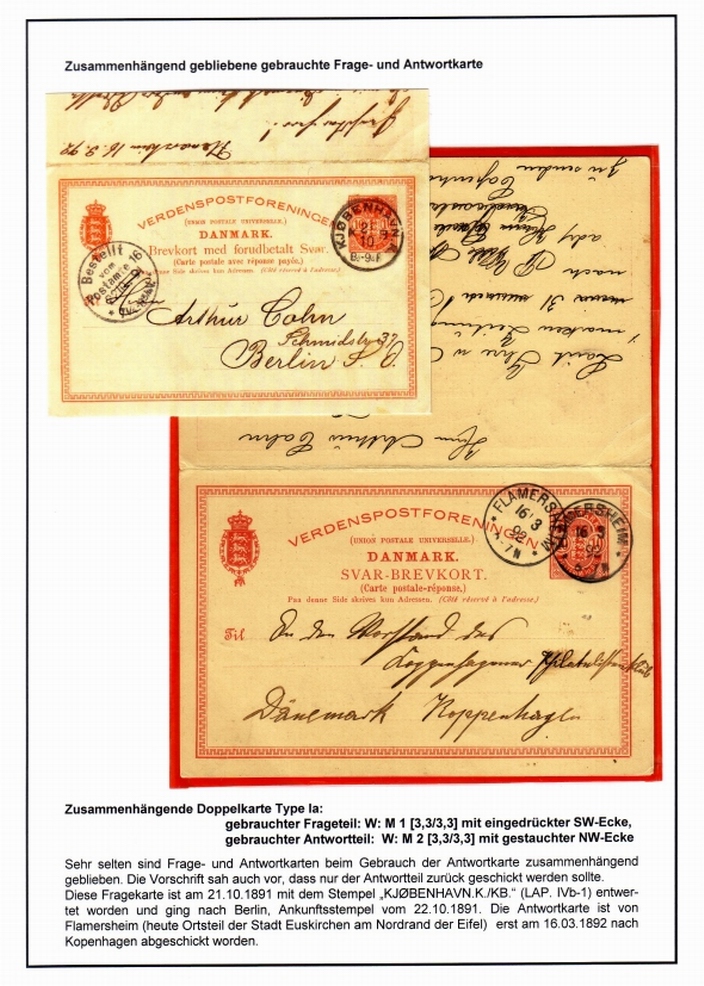 Zusammenhängend gebliebene gebrauchte Frage- und Antwortkarte
Flamersheim 16.3.92
VERDENSPOSTFORENINGEN
(UNION POSTALE UNIVERSELLE.)
DANMARK.
Brevkort med forudbetalt Svar.
(Carte postale avec réponse payée.)
denne Side skrives kun Adressen. (Côté réservé à l'adresse.)
KJØBENHAVN.K.
21
10
Bestellt
vom
Postamte 16
Arthur Cohn
Schmidstr 37
Berlin S. O.
Herrn Arthur Cohn
VERDENSPOSTFORENINGEN
(UNION POSTALE UNIVERSELLE.)
DANMARK.
SVAR-BREVKORT.
(Carte postale-réponse.)
Paa denne Side skrives kun Adressen. (Côté réservé à l'adresse.)
FLAMERSHEIM
16 3
92
FLAMERSHEIM
16 3
92
Til An den Vorstand des
Koppenhagener Philatelistenklub
Dänemark Koppenhagen
Zusammenhängende Doppelkarte Type Ia:
gebrauchter Frageteil: W: M 1 [3,3/3,3] mit eingedrückter SW-Ecke,
gebrauchter Antwortteil: W: M 2 [3,3/3,3] mit gestauchter NW-Ecke
Sehr selten sind Frage- und Antwortkarten beim Gebrauch der Antwortkarte zusammenhängend
geblieben. Die Vorschrift sah auch vor, dass nur der Antwortteil zurück geschickt werden sollte.
Diese Fragekarte ist am 21.10.1891 mit dem Stempel „KJØBENHAVN.K./KB." (LAP. IVb-1) entwer-
tet worden und ging nach Berlin, Ankunftsstempel vom 22.10.1891. Die Antwortkarte ist von
Flamersheim (heute Ortsteil der Stadt Euskirchen am Nordrand der Eifel) erst am 16.03.1892 nach
Kopenhagen abgeschickt worden.